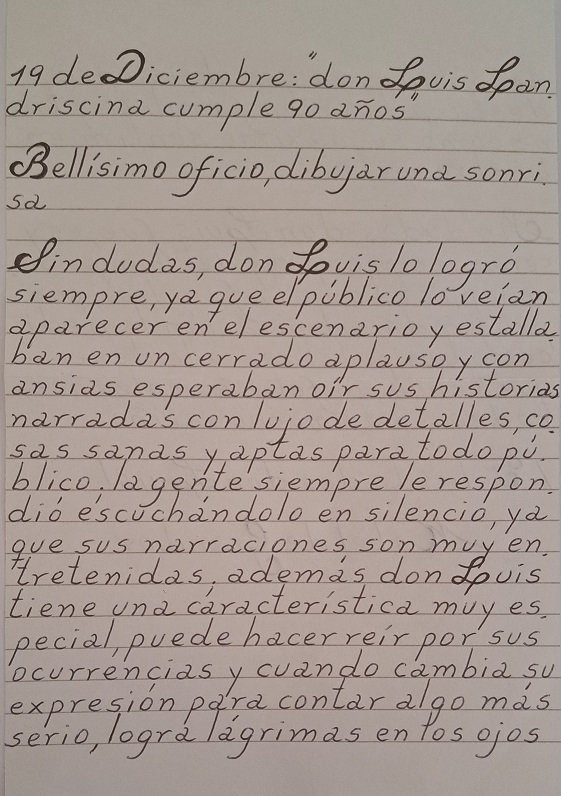 19 de Diciembre: "don Luis Lan.
driscina cumple 90 años"
Bellísimo oficio, dibujar una sonri.
sa
Sin dudas, don Luis lo logró
siempre, ya que el público lo veían
aparecer en el escenario y estalla.
ban en un cerrado aplauso y con
ansias esperaban oír sus historias
narradas con lujo de detalles, co.
sas sanas y aptas para todo pú.
blico; la gente siempre le respon.
dió escuchándolo en silencio, ya
que sus narraciones son muy en.
tretenidas; además don Luis
tiene una característica muy es.
pecial, puede hacer reír por sus
ocurrencias y cuando cambia su
expresión para contar algo más
serio, logra lágrimas en los ojos